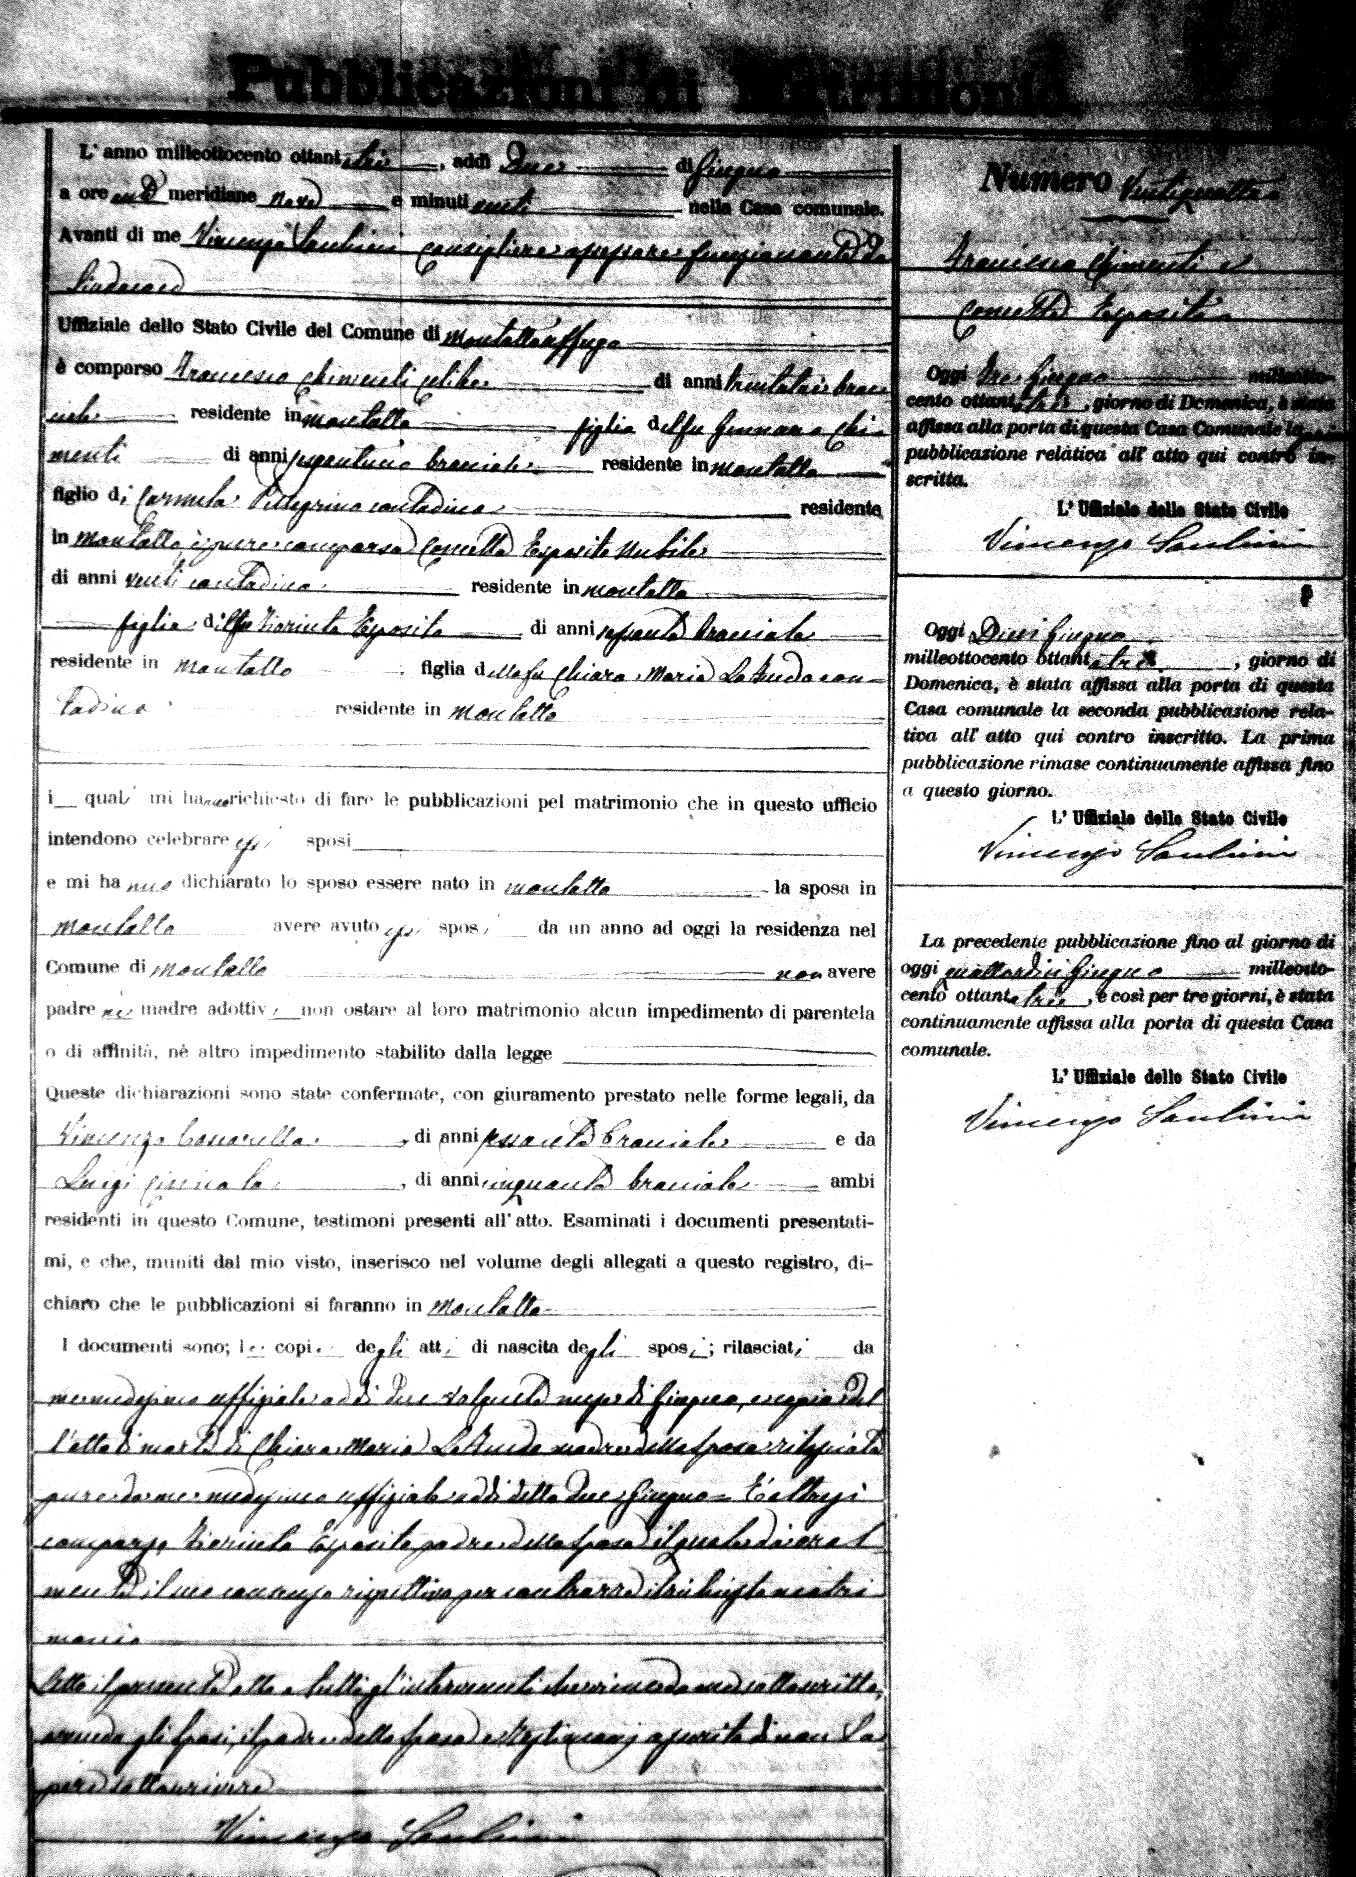 Pubblicazioni di Matrimonio
L' anno milleottocento ottantatrè, addì Due di Giugno
a ore anti meridiane nove e minuti venti nella Casa comunale.
Avanti di me Vincenzo consigliere assessore funzionante da
Sindaco
Uffiziale dello Stato Civile del Comune di Montaltouffugo
è comparso Francesco Chimenti celibe di anni trentatrè brac
ciale residente in Montalto figlio del fu Gennaro Chi-
menti di anni sessantuno bracciale residente in Montalto
figlio di Carmela Pellegrino contadina residente
in Montalto, è pure comparsa Concetta Esposito Nubile
di anni venti contadina residente in Montalto
figlia di Esposito di anni sessanta bracciale
residente in Montalto figlia della fu Chiara Maria con-
tadina residente in Montalto
i quali mi hanno richiesto di fare le pubblicazioni pel matrimonio che in questo ufficio
intendono celebrare essi sposi
e mi hanno dichiarato lo sposo essere nato in Montalto la sposa in
Montalto avere avuto essi sposi da un anno ad oggi la residenza nel
Comune di Montalto non avere
padre nè madre adottivi non ostare al loro matrimonio alcun impedimento di parentela
o di affinità, nè altro impedimento stabilito dalla legge
Queste dichiarazioni sono state confermate, con giuramento prestato nelle forme legali, da
Vincenzo di anni sessanta bracciale e da
Luigi di anni cinquanta bracciale ambi
residenti in questo Comune, testimoni presenti all' atto. Esaminati i documenti presentati-
mi, e che, muniti dal mio visto, inserisco nel volume degli allegati a questo registro, di-
chiaro che le pubblicazioni si faranno in Montalto
I documenti sono; le copie degli atti di nascita degli sposi; rilasciati da
me medesimo uffiziale addì due volgente mese di Giugno, e copia del
l'atto di morte di Chiara Maria madre della sposa rilasciata
pure da me medesimo uffiziale addì detto due Giugno = È altresì
comparso Esposito padre della sposa il quale
il suo consenso rispettivo per contrarre il richiesto matri
monio
Letto il presente atto a tutti gl'intervenuti che viene da me sottoscritto,
avendo gli sposi, il padre della sposa e testimonj asserito di non sa
pere sottoscrivere
Vincenzo
Numero Ventiquattro
Francesco Chimenti e
Concetta Esposito
Oggi Tre Giugno milleotto-
cento ottantatrè, giorno di Domenica, è stata
affissa alla porta di questa Casa Comunale la prima
pubblicazione relativa all' atto qui contro in-
scritta.
L' Uffiziale dello Stato Civile
Vincenzo
Oggi Dieci Giugno
milleottocento ottantatrè, giorno di
Domenica, è stata affissa alla porta di questa
Casa comunale la seconda pubblicazione rela-
tiva all' atto qui contro inscritto. La prima
pubblicazione rimase continuamente affissa fino
a questo giorno.
L' Uffiziale dello Stato Civile
Vincenzo
La precedente pubblicazione fino al giorno di
oggi quattordici Giugno milleotto-
cento ottantatrè, e così per tre giorni, è stata
continuamente affissa alla porta di questa Casa
comunale.
L' Uffiziale dello Stato Civile
Vincenzo